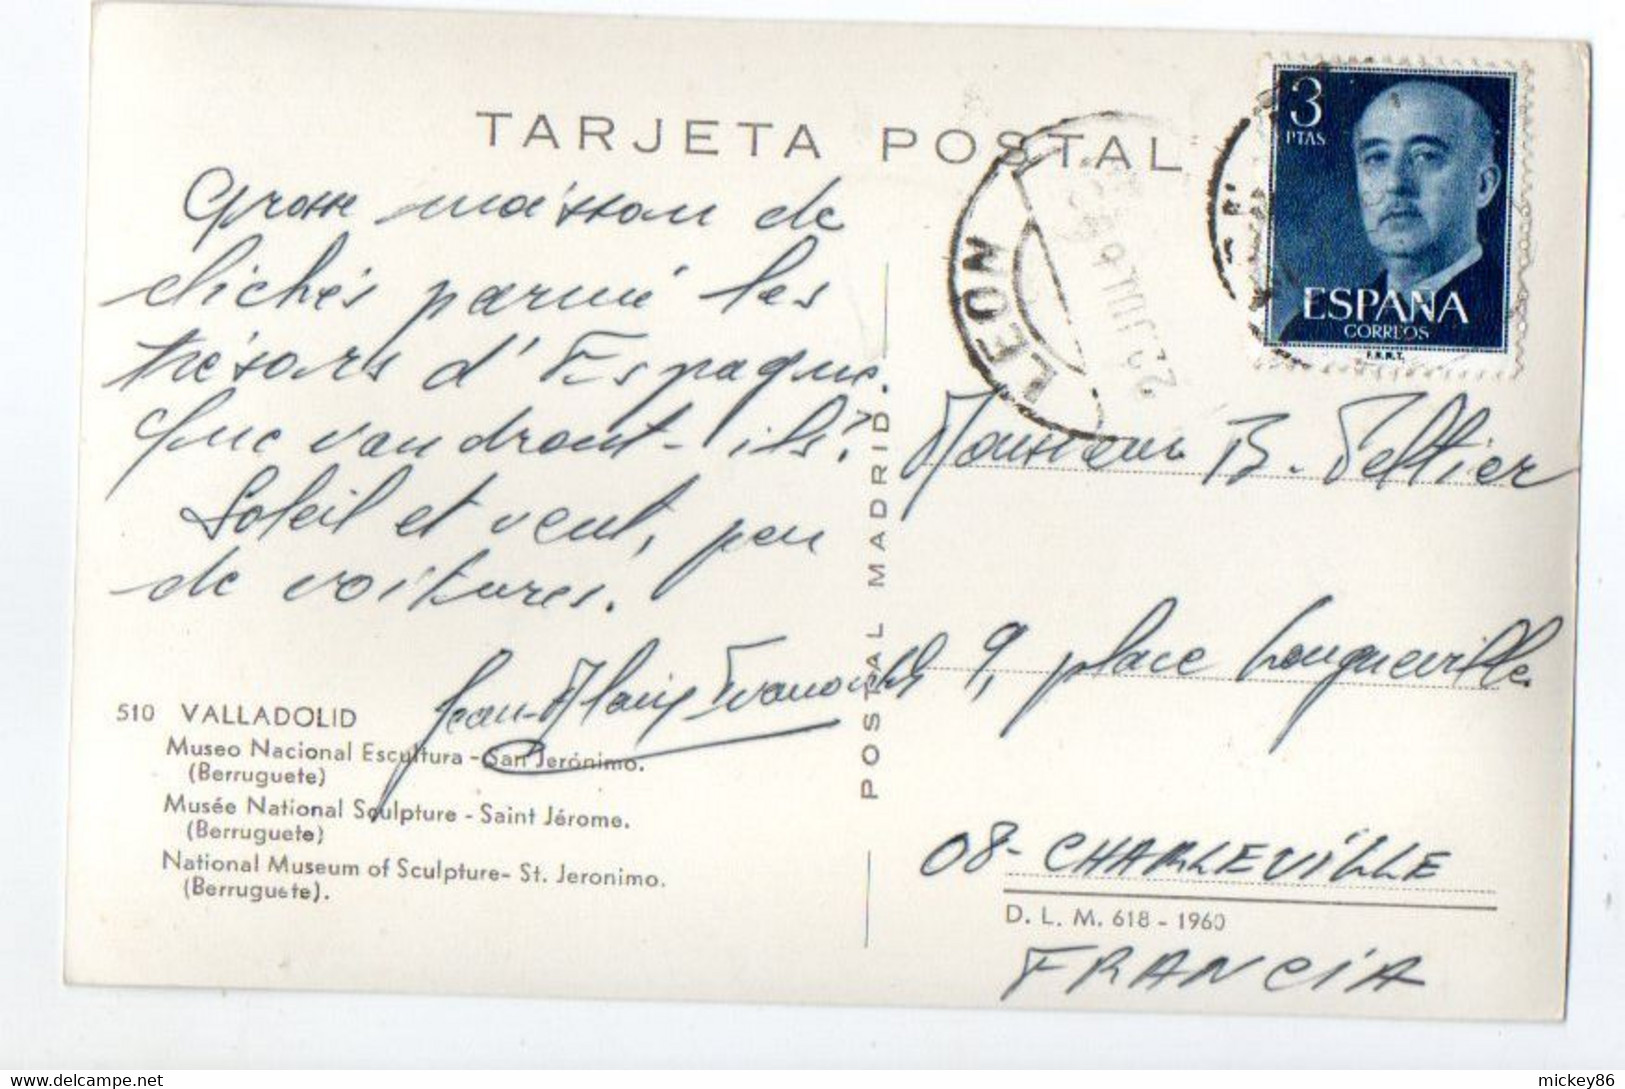 TARJETA POSTAL
3
PTAS
ESPAÑA
CORREOS
F.N.M.T.
LEON
Grosse moisson de
clichés parmi les
trésors d'Espagne.
Que vaudront-ils?
Soleil et vent, peu
de voitures.
Jean-Alain Ivanoski
510 VALLADOLID
Museo Nacional Escultura - San Jerónimo.
(Berruguete)
Musée National Sculpture - Saint Jérome.
(Berruguete)
National Museum of Sculpture- St. Jeronimo.
(Berruguete).
POSTAL MADRID.
Monsieur B. Peltier
9, place Longueville
08- CHARLEVILLE
D. L. M. 618 - 1960
FRANCIA
mickey86
www.delcampe.net